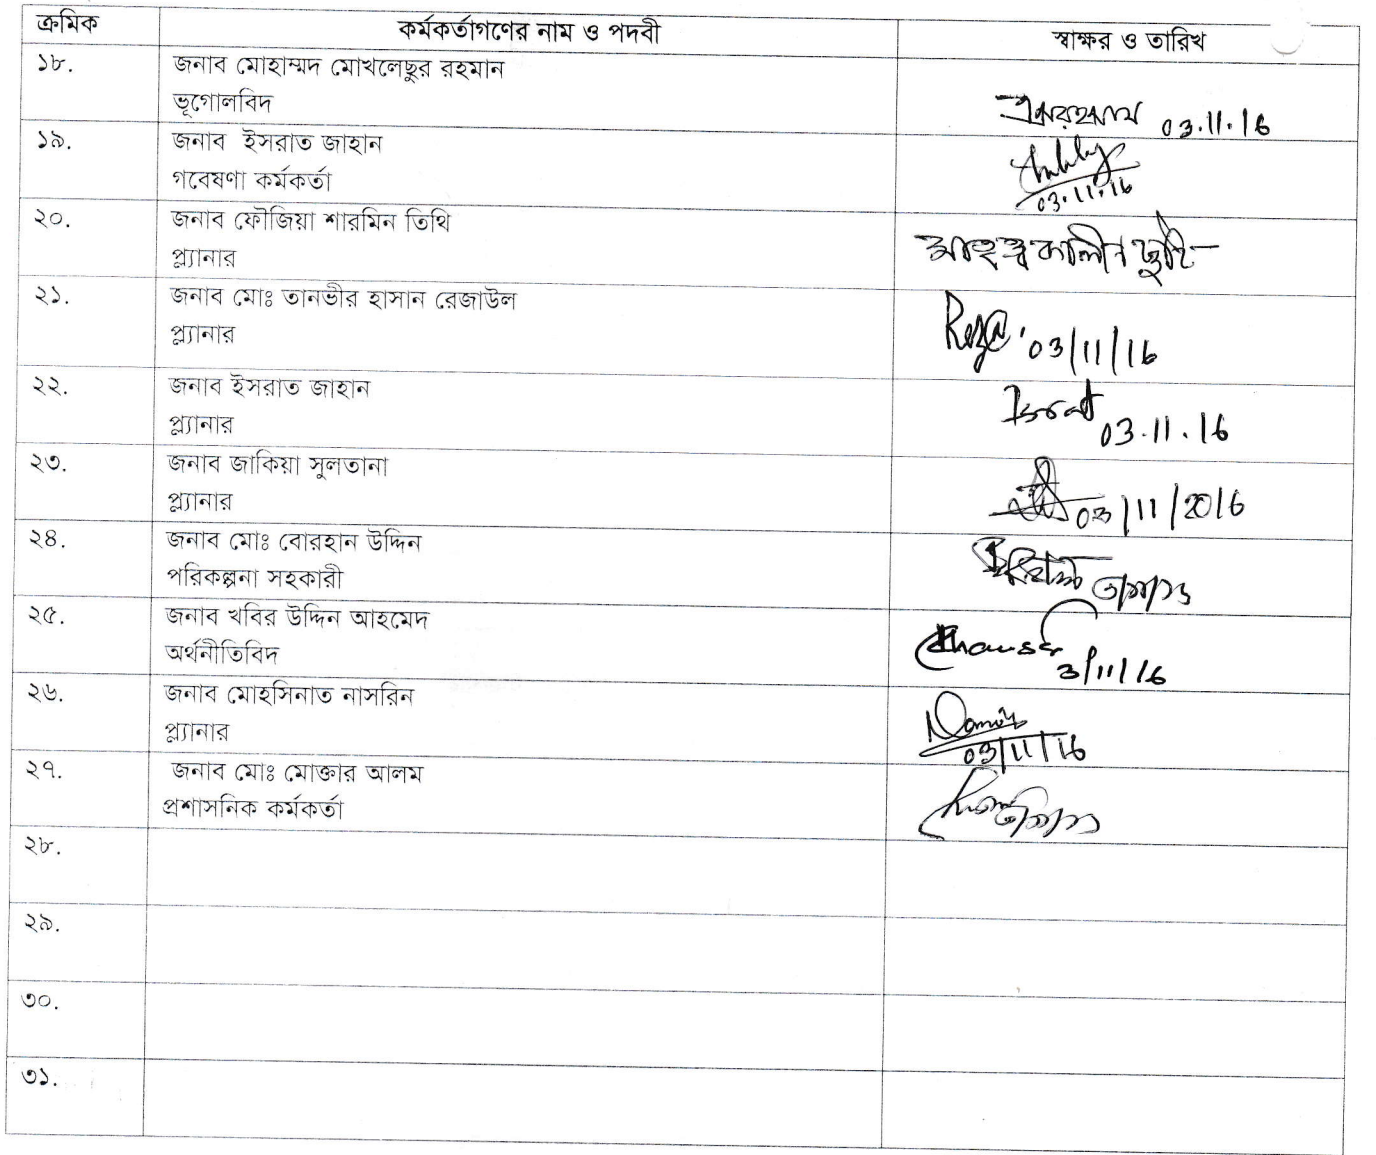 ক্রমিক কর্মকর্তাগণের নাম ও পদবী স্বাক্ষর ও তারিখ
১৮. জনাব মোহাম্মদ মোখলেছুর রহমান
ভূগোলবিদ
03.11.16
১৯. জনাব ইসরাত জাহান
গবেষণা কর্মকর্তা
03.11.16
২০. জনাব ফৌজিয়া শারমিন তিথি
প্ল্যানার
মাতৃত্বকালীন ছুটি-
২১. জনাব মোঃ তানভীর হাসান রেজাউল
প্ল্যানার
03/11/16
২২. জনাব ইসরাত জাহান
প্ল্যানার
Israt 03.11.16
২৩. জনাব জাকিয়া সুলতানা
প্ল্যানার
03/11/2016
২৪. জনাব মোঃ বোরহান উদ্দিন
পরিকল্পনা সহকারী
৩/১১/১৬
২৫. জনাব খবির উদ্দিন আহমেদ
অর্থনীতিবিদ
3/11/16
২৬. জনাব মোহসিনাত নাসরিন
প্ল্যানার
03/11/16
২৭. জনাব মোঃ মোক্তার আলম
প্রশাসনিক কর্মকর্তা
৩/১১/১৬
২৮.
২৯.
৩০.
৩১.